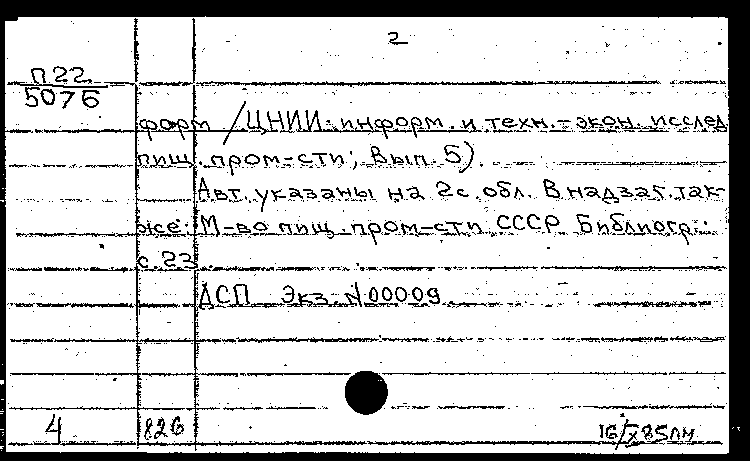 2
П22
5076
форм /ЦНИИ информ. и техн.-экон. исслед
пищ. пром-сти; Вып. 5).
Авт. указаны на 2 с. обл. В надзаг. так-
же: М-во пищ. пром-сти СССР. Библиогр.:
с. 23
ДСП Экз. N00009
4 826 16/X 85